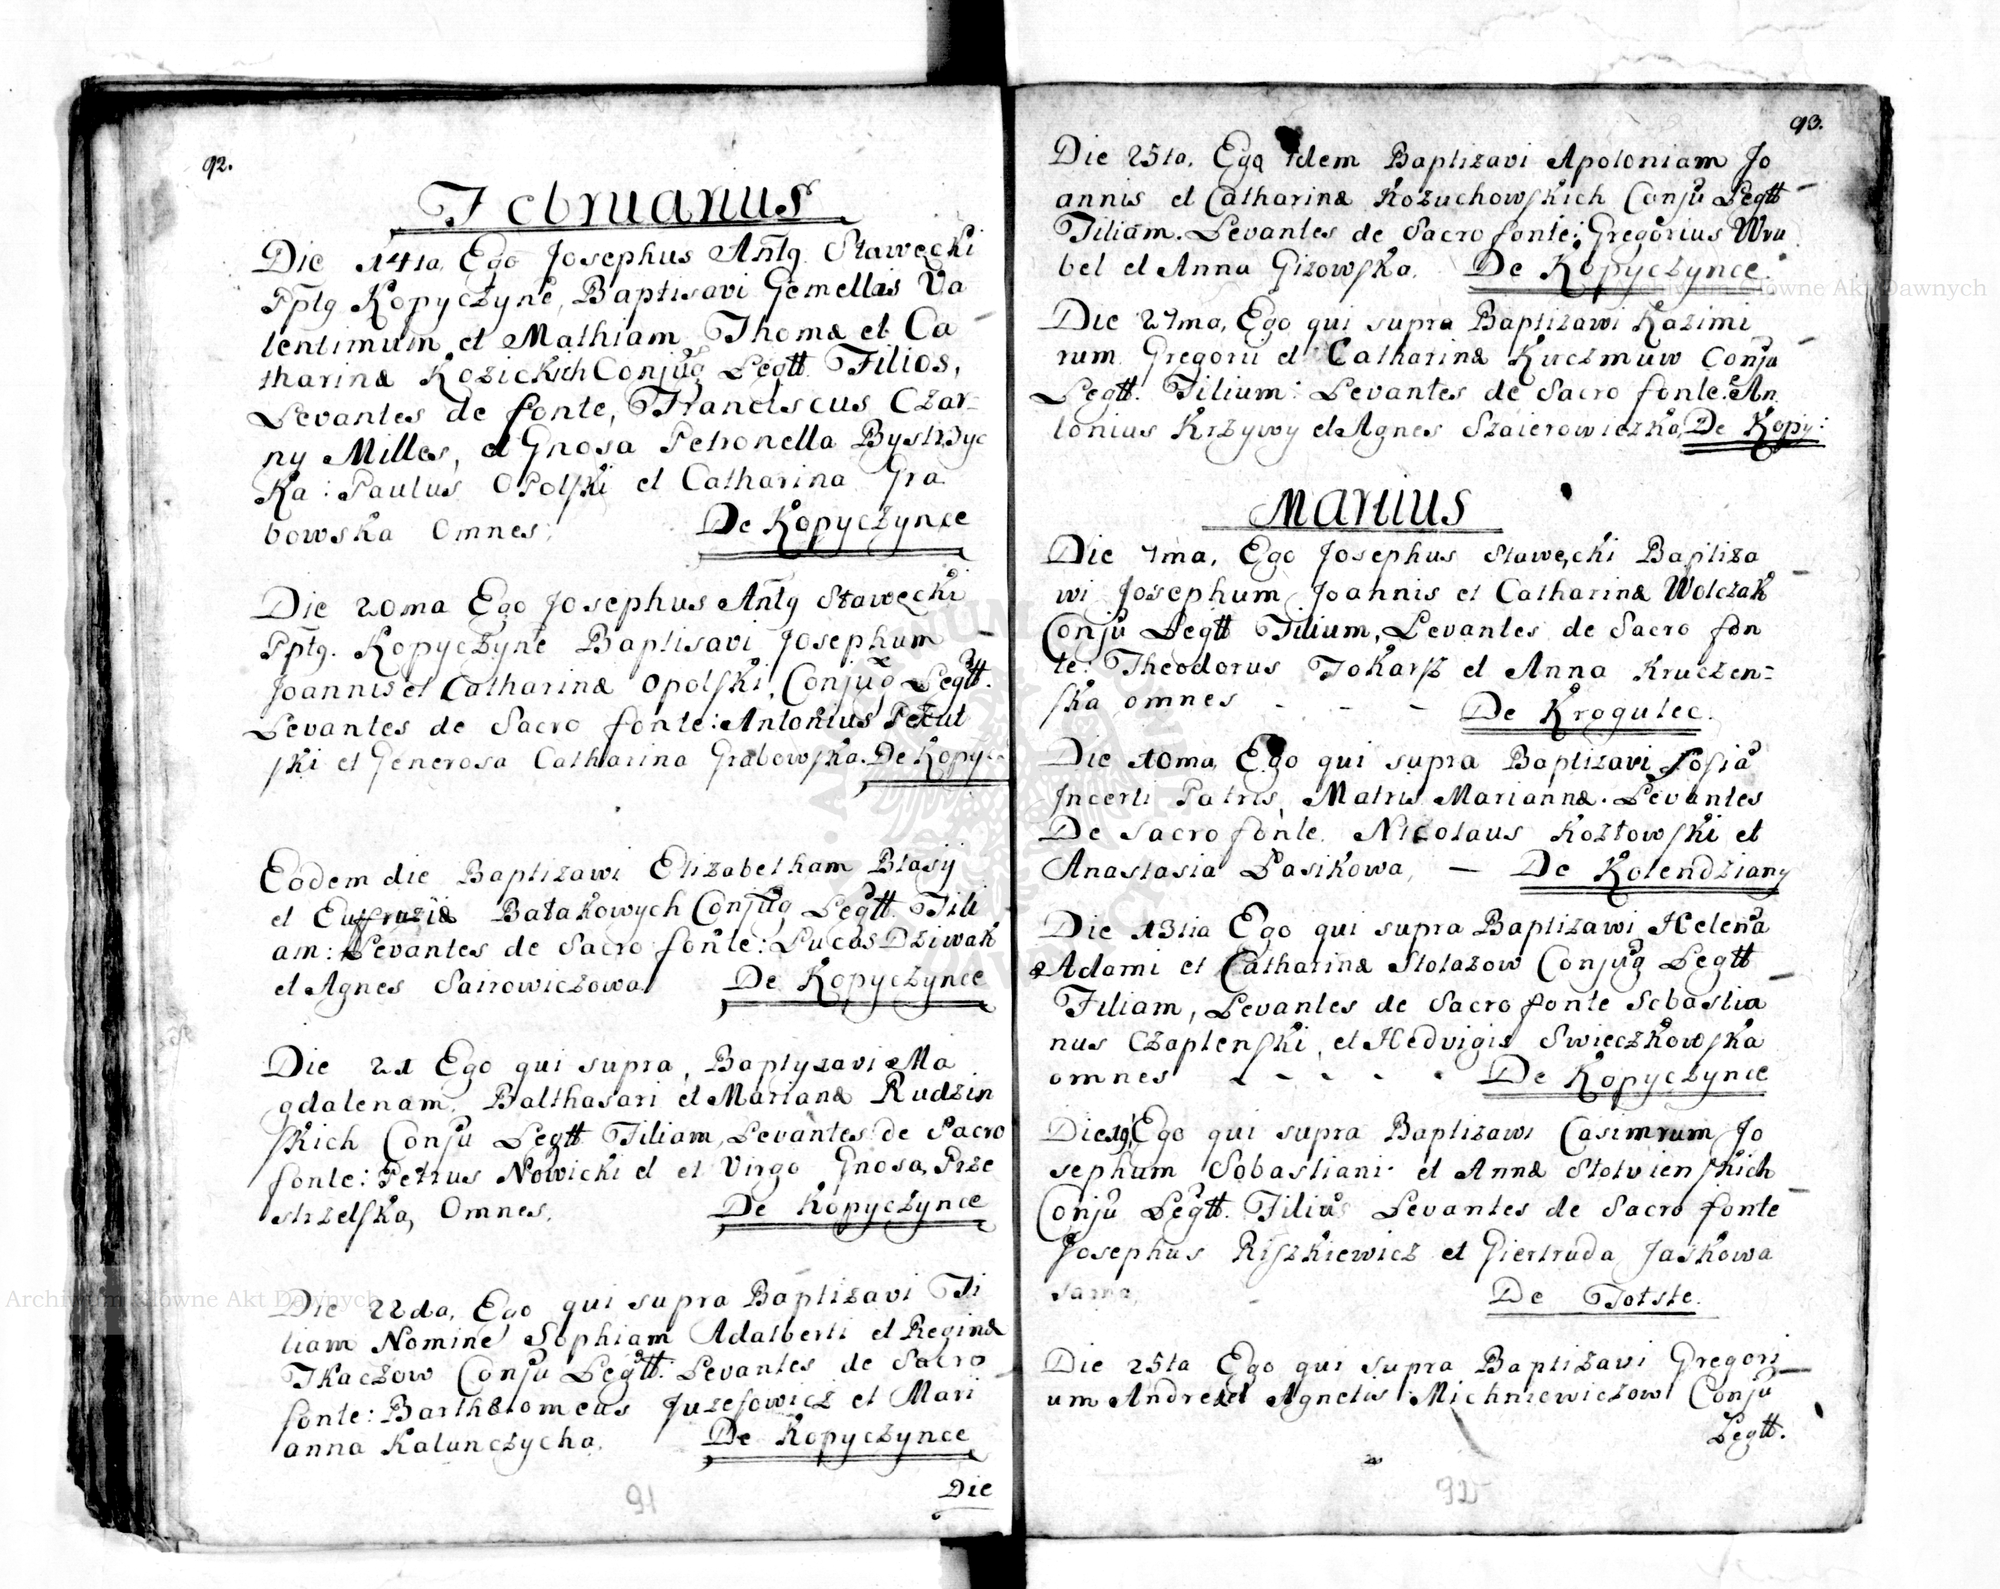 92.
Februarius
Die 14ta, Ego Josephus Antq Stawęcki
Pptq Kopyczyne, Baptisavi Gemellas Va
lentimum et Mathiam Thomæ et Ca
tharinæ Kozickich Conjug Legtt Filios,
Levantes de fonte, Franciscus Czar-
ny Milles, et Gnosa Petronella Bystrzyc
Ka: Paulus Opolski et Catharina Gra
bowska Omnes, De Kopyczynce
Die 20ma Ego Josephus Antq Stawęcki
Pptq. Kopyczyne Baptisavi Josephum
Joannis et Catharinæ Opolski, Conjug Legtt.
Levantes de Sacro fonte: Antonius
ski et Generosa Catharina Grabowska. De Kopy
Eodem die Baptizawi Elizabetham Blasij
et Eufrasiæ Batakowych Conjug Legtt. Fili
am: Levantes de Sacro fonte: Lucas Dziwak
et Agnes Sairowiczowa De Kopyczynce
Die 21 Ego qui supra, Baptyzavi Ma
gdalenam, Balthasari et Marianæ Rudzin
skich Conju Legtt Filiam, Levantes de Sacro
fonte: Petrus Nowicki et et Virgo Gnosa, Prze
strzelska, Omnes, De Kopyczynce
Die 22da, Ego qui supra Baptizavi Fi
liam Nomine Sophiam Adalberti et Reginæ
Tkaczow Conju Legtt. Levantes de Sacro
fonte: Bartholomeus Juzefowicz et Mari
anna Kalunczycha, De Kopyczynce
Die
91
93.
Die 25ta, Ego idem Baptizavi Apoloniam Jo
annis et Catharinæ Kozuchowskich Conju Legtt
Filiam. Levantes de Sacro fonte: Gregorius Wru
bel et Anna Gizowska. De Kopyczynce.
Die 27ma, Ego qui supra Baptizawi Kazimi
rum Gregorii et Catharinæ Kuczmuw Conju
Legtt. Filium: Levantes de Sacro fonte: An
tonius Krzywy et Agnes Szaierowiczka, De Kopy:
Martius
Die 7ma, Ego Josephus Stawęcki Baptiza
wi Josephum Joannis et Catharinæ Wolczak
Conju Legtt Filium, Levantes de Sacro fon
te: Theodorus Tokarsz et Anna Kruczen-
ska omnes - - - De Krogulec.
Die 10ma, Ego qui supra Baptizavi Sofia
Incerti Patris, Matris Mariannæ. Levantes
De Sacro fonte. Nicolaus Kozłowski et
Anastasia Pasikowa, — De Kolendziany
Die 13tia Ego qui supra Baptizawi Helena
Adami et Catharinæ Stotazow Conjug Legtt
Filiam, Levantes de Sacro fonte Sebastia
nus Czaplenski, et Hedvigis Swieczkowska
omnes - - - - De Kopyczynce
Die 19, Ego qui supra Baptizawi Casimirum Jo
sephum Sobastiani et Annæ Stotwienskich
Conju Legtt. Filiu Levantes de Sacro fonte
Josephus Riszkiewicz et Giertruda Jaskowa
sama, De Totste.
Die 25ta Ego qui supra Baptizavi Gregori
um Andreæ et Agnetis Michniewiczow Conju
Legtt.
92